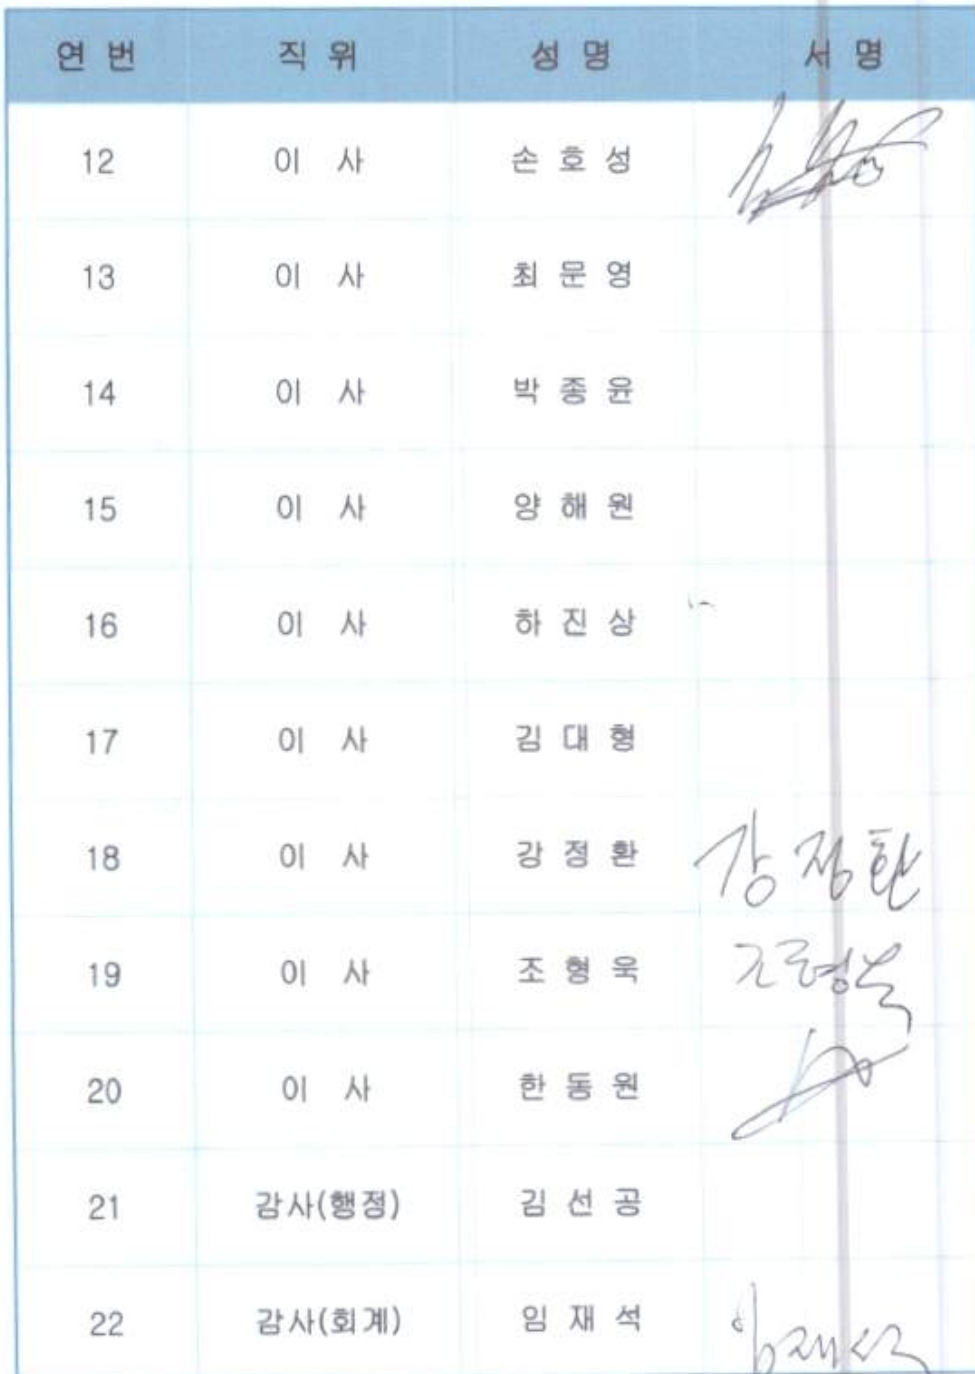 연 번 직 위 성 명 서 명
12 이 사 손 호 성
13 이 사 최 문 영
14 이 사 박 종 윤
15 이 사 양 해 원
16 이 사 하 진 상
17 이 사 김 대 형
18 이 사 강 정 환 강 정 환
19 이 사 조 형 욱 조형욱
20 이 사 한 동 원
21 감사(행정) 김 선 공
22 감사(회계) 임 재 석 임재석